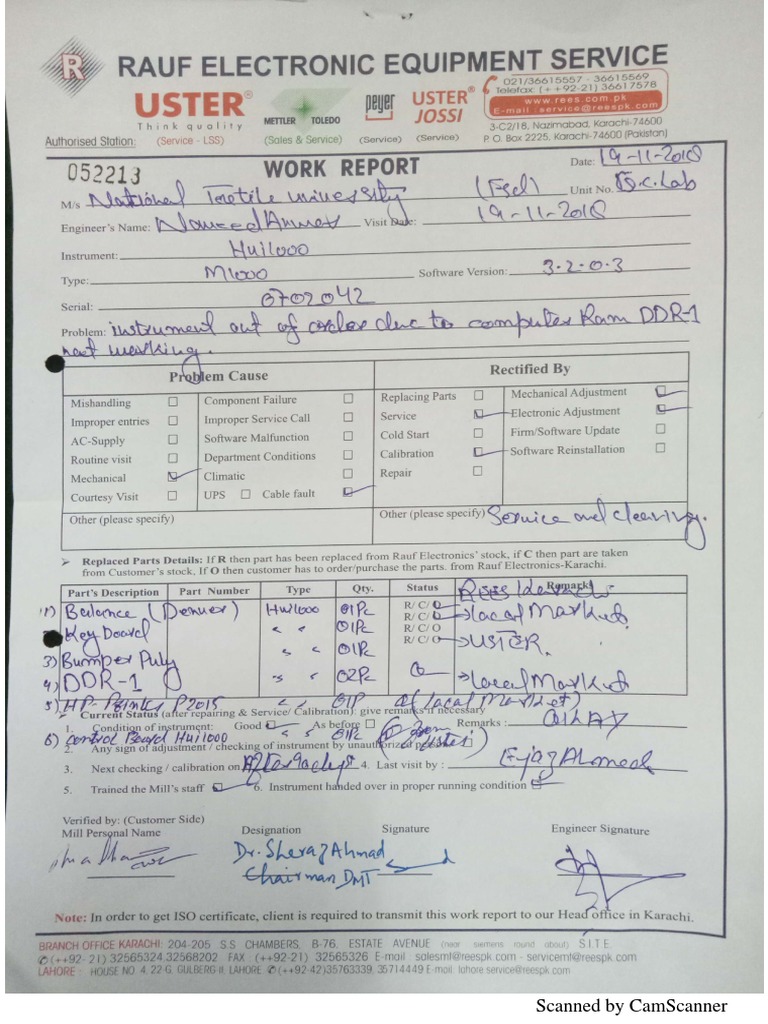 R RAUF ELECTRONIC EQUIPMENT SERVICE
021/36615557 - 36615569
Telefax: (++92-21) 36617578
www.rees.com.pk
E-mail: service@reespk.com
3-C2/18, Nazimabad, Karachi-74600
P. O. Box 2225, Karachi-74600 (Pakistan)
USTER®
Think quality
METTLER TOLEDO
peyer
USTER®
JOSSI
Authorised Station: (Service - LSS) (Sales & Service) (Service) (Service)
052213 WORK REPORT Date: 19-11-2018
M/s National Textile University (Fsd) Unit No. Q.C. Lab
Engineer's Name: Naveed Ahmed Visit Date: 19-11-2018
Instrument: Hvi1000
Type: M1000 Software Version: 3-2-0-3
Serial: 0702042
Problem: instrument out of order due to computer Ram DDR-1
not working.
Problem Cause Rectified By
Mishandling Component Failure Replacing Parts Mechanical Adjustment
Improper entries Improper Service Call Service Electronic Adjustment
AC-Supply Software Malfunction Cold Start Firm/Software Update
Routine visit Department Conditions Calibration Software Reinstallation
Mechanical Climatic Repair
Courtesy Visit UPS Cable fault
Other (please specify) Other (please specify) Service and cleaning.
➢ Replaced Parts Details: If R then part has been replaced from Rauf Electronics' stock, if C then part are taken
from Customer's stock, If O then customer has to order/purchase the parts. from Rauf Electronics-Karachi.
Part's Description Part Number Type Qty. Status Remarks
1) Balance (Denver) Hvi1000 01Pc R/ C/ O Local Market.
Key Board " " 01Pc R/ C/ O
3) Bumper Puly " " 01Pc R/ C/ O USTER.
4) DDR-1 " " 02Pc O Local Market
5) HP-Printer P2015 " " 01P (Local Market)
Current Status (after repairing & Service/ Calibration): give remarks if necessary
1. Condition of instrument: Good As before Remarks: OKAY
6) Control Board Hvi1000 " 01Pc (From Uster)
2. Any sign of adjustment / checking of instrument by unauthorized person
3. Next checking / calibration on After 90 days 4. Last visit by: Ejaz Ahmed
5. Trained the Mill's staff 6. Instrument handed over in proper running condition
Verified by: (Customer Side)
Mill Personal Name Designation Signature Engineer Signature
Dr. Sheraz Ahmad
Chairman DMT
Note: In order to get ISO certificate, client is required to transmit this work report to our Head office in Karachi.
BRANCH OFFICE KARACHI: 204-205 S.S CHAMBERS, B-76, ESTATE AVENUE (near siemens round about) S.I.T.E.
(++92- 21) 32565324.32568202 FAX : (++92-21) 32565326 E-mail : salesmt@reespk.com - servicemt@reespk.com
LAHORE : HOUSE NO. 4, 22-G, GULBERG-II, LAHORE (++92-42)35763339, 35714449 E-mail: lahore.service@reespk.com
Scanned by CamScanner